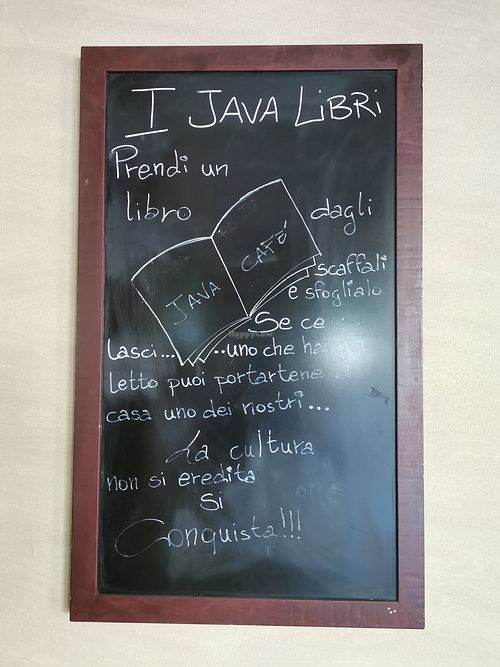 I JAVA LiBRi
Prendi un
libro dagli
scaffali
e sfoglialo
JAVA CAFE'
Se ce
lasci... ...uno che hai già
letto puoi portartene a
casa uno dei nostri...
La cultura
non si eredita
Si
Conquista!!!
HappyCow